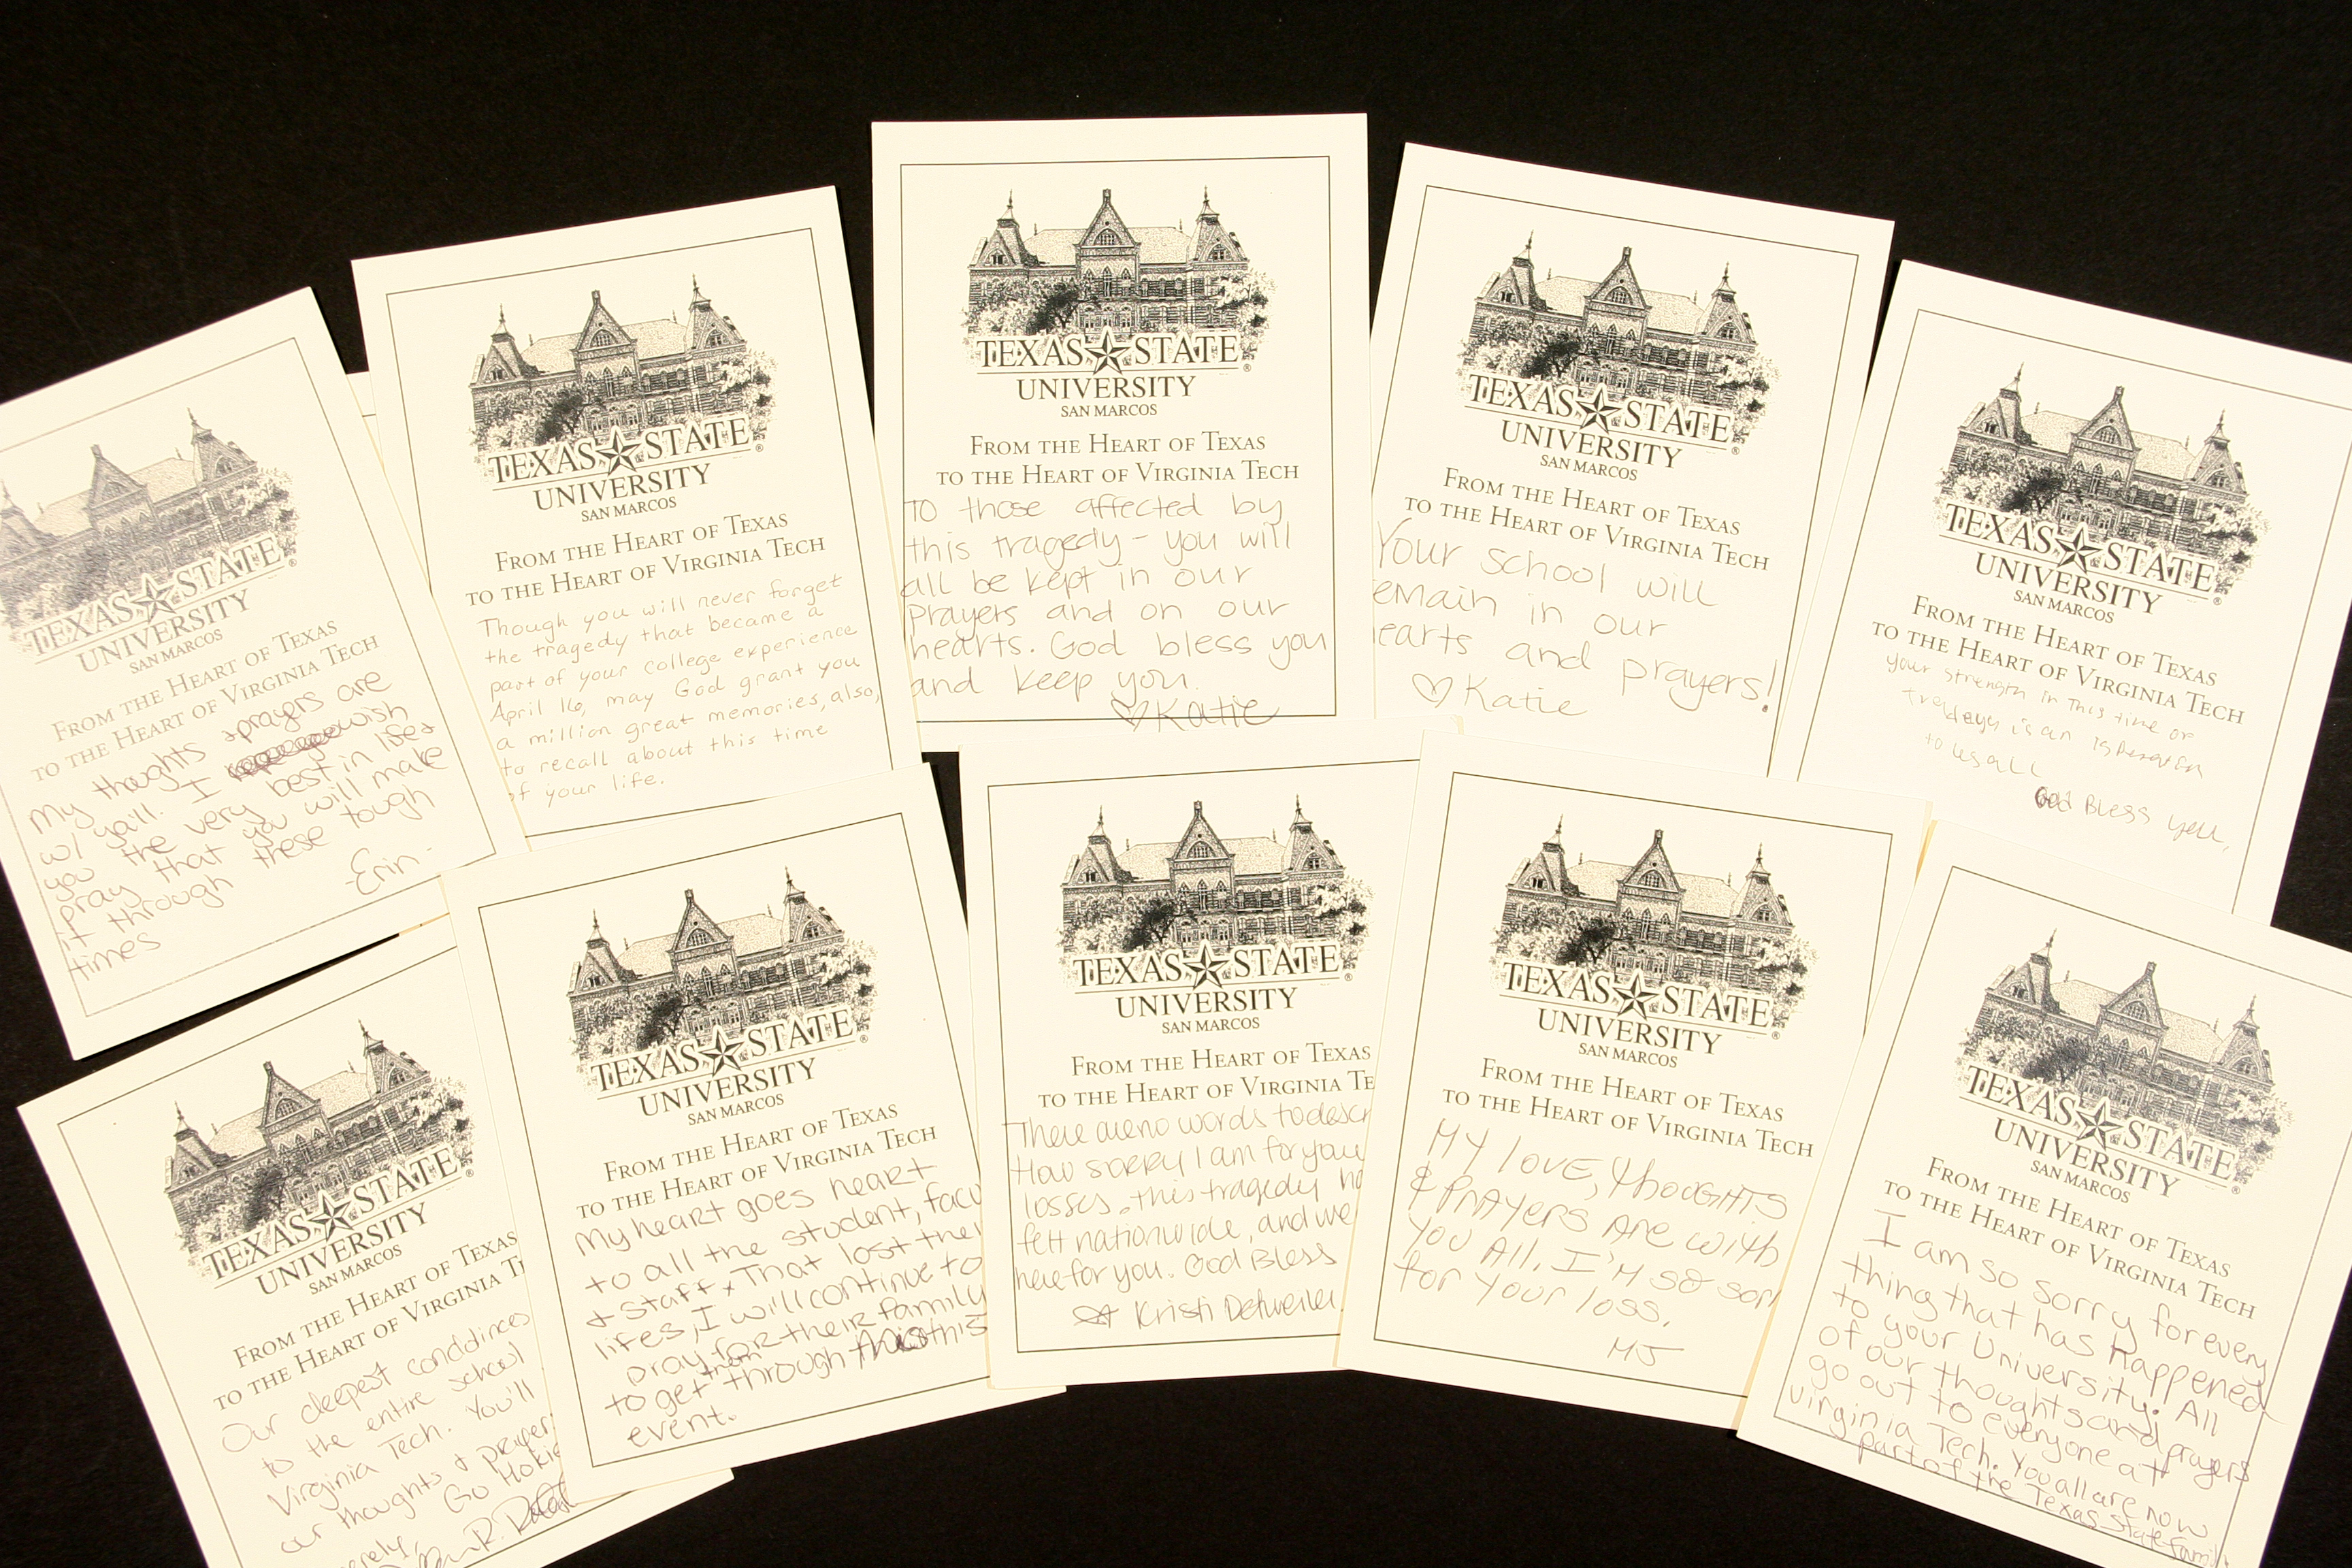 TEXAS STATE
UNIVERSITY
SAN MARCOS
FROM THE HEART OF TEXAS
TO THE HEART OF VIRGINIA TECH
My thoughts & prayers are
w/ ya'll. I wish
you the very best in life &
pray that you will make
it through these tough
times
-Erin-
TEXAS STATE ®
UNIVERSITY
SAN MARCOS
FROM THE HEART OF TEXAS
TO THE HEART OF VIRGINIA TECH
Though you will never forget
the tragedy that became a
part of your college experience
April 16, may God grant you
a million great memories, also,
to recall about this time
of your life.
TEXAS STATE ®
UNIVERSITY
SAN MARCOS
FROM THE HEART OF TEXAS
TO THE HEART OF VIRGINIA TECH
To those affected by
this tragedy - you will
all be kept in our
prayers and on our
hearts. God bless you
and keep you.
♡ Katie
TEXAS STATE ®
UNIVERSITY
SAN MARCOS
FROM THE HEART OF TEXAS
TO THE HEART OF VIRGINIA TECH
Your school will
emain in our
earts and prayers!
♡ Katie
TEXAS STATE ®
UNIVERSITY
SAN MARCOS
FROM THE HEART OF TEXAS
TO THE HEART OF VIRGINIA TECH
your strength in this time of
is an
to us all
God Bless you,
TEXAS STATE ®
UNIVERSITY
SAN MARCOS
FROM THE HEART OF TEXAS
TO THE HEART OF VIRGINIA TE
Our deepest condolinces
to the entire school
Virginia Tech. You'll
our thoughts & prayer
Go Hokie
erely,
R.
TEXAS STATE ®
UNIVERSITY
SAN MARCOS
FROM THE HEART OF TEXAS
TO THE HEART OF VIRGINIA TECH
My heart goes heart
to all the student, facu
& staff, That lost their
lifes, I will continue to
pray for their family
to get them through this
event.
TEXAS STATE ®
UNIVERSITY
SAN MARCOS
FROM THE HEART OF TEXAS
TO THE HEART OF VIRGINIA TE
There are no words to descr
How sorry I am for your
losses. this tragedy ha
felt nationwide, and we
here for you. God Bless
Kristi Detweiler
TEXAS STATE ®
UNIVERSITY
SAN MARCOS
FROM THE HEART OF TEXAS
TO THE HEART OF VIRGINIA TECH
My love, thoughts
& prayers are with
you all. I'm so sorr
for your loss.
MJ
TEXAS STATE ®
UNIVERSITY
SAN MARCOS
FROM THE HEART OF TEXAS
TO THE HEART OF VIRGINIA TECH
I am so sorry for every
thing that has happened
to your University. All
of our thoughts and prayers
go out to everyone at
Virginia Tech. You all are now
part of the Texas State famil